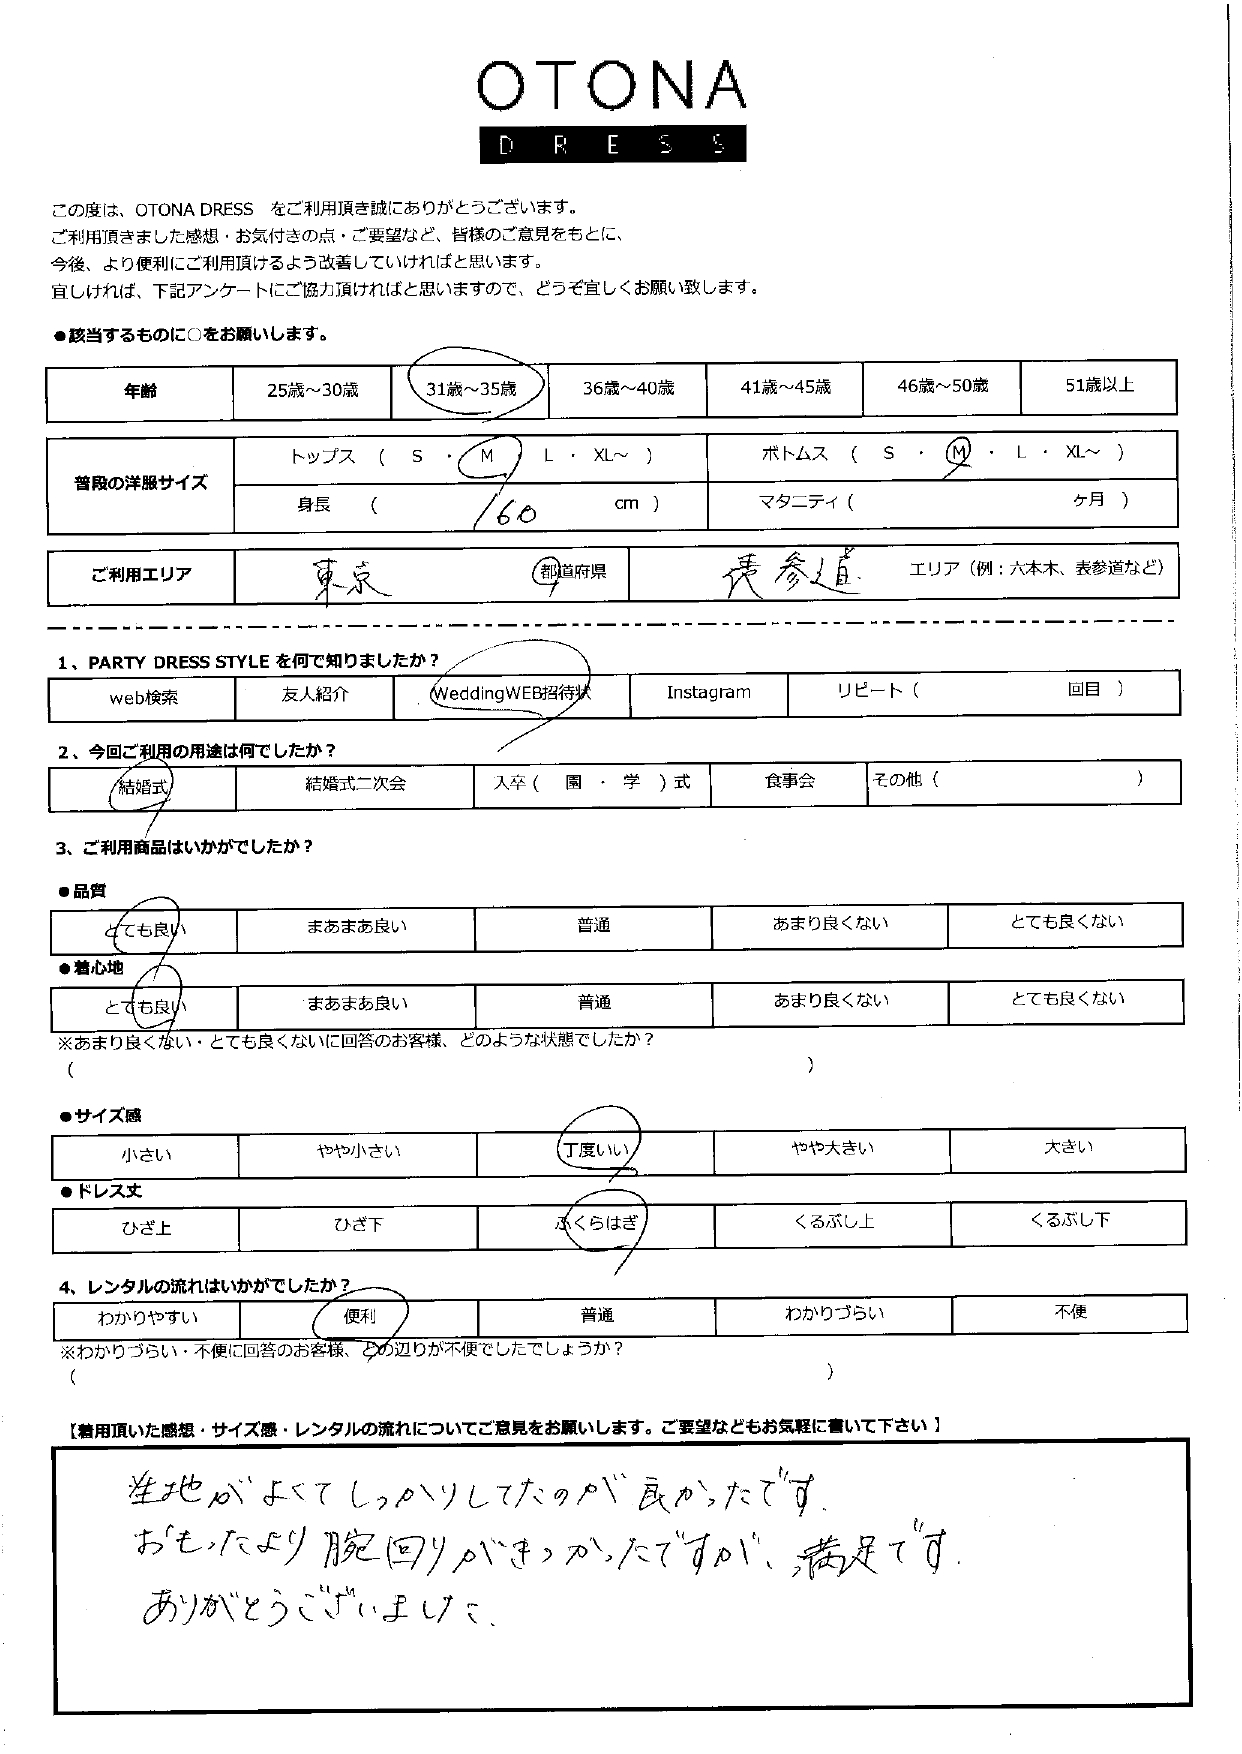 OTONA
DRESS
この度は、OTONA DRESS　をご利用頂き誠にありがとうございます。
ご利用頂きました感想・お気付きの点・ご要望など、皆様のご意見をもとに、
今後、より便利にご利用頂けるよう改善していければと思います。
宜しければ、下記アンケートにご協力頂ければと思いますので、どうぞ宜しくお願い致します。
●該当するものに○をお願いします。
年齢 25歳～30歳 31歳～35歳 36歳～40歳 41歳～45歳 46歳～50歳 51歳以上
普段の洋服サイズ トップス ( S ・ M ・ L ・ XL～ ) ボトムス ( S ・ M ・ L ・ XL～ )
身長 ( 160 cm ) マタニティ ( ケ月 )
ご利用エリア 東京 都道府県 表参道 エリア（例：六本木、表参道など）
1、PARTY DRESS STYLE を何で知りましたか？
web検索 友人紹介 WeddingWEB招待状 Instagram リピート ( 回目 )
2、今回ご利用の用途は何でしたか？
結婚式 結婚式二次会 入卒 ( 園 ・ 学 ) 式 食事会 その他 ( )
3、ご利用商品はいかがでしたか？
●品質
とても良い まあまあ良い 普通 あまり良くない とても良くない
●着心地
とても良い まあまあ良い 普通 あまり良くない とても良くない
※あまり良くない・とても良くないに回答のお客様、どのような状態でしたか？
( )
●サイズ感
小さい やや小さい 丁度いい やや大きい 大きい
●ドレス丈
ひざ上 ひざ下 ふくらはぎ くるぶし上 くるぶし下
4、レンタルの流れはいかがでしたか？
わかりやすい 便利 普通 わかりづらい 不便
※わかりづらい・不便に回答のお客様、どの辺りが不便でしたでしょうか？
( )
【着用頂いた感想・サイズ感・レンタルの流れについてご意見をお願いします。ご要望などもお気軽に書いて下さい 】
生地がよくてしっかりしてたのが良かったです.
おもったより腕回りがきつかったですが、満足です.
ありがとうございました.